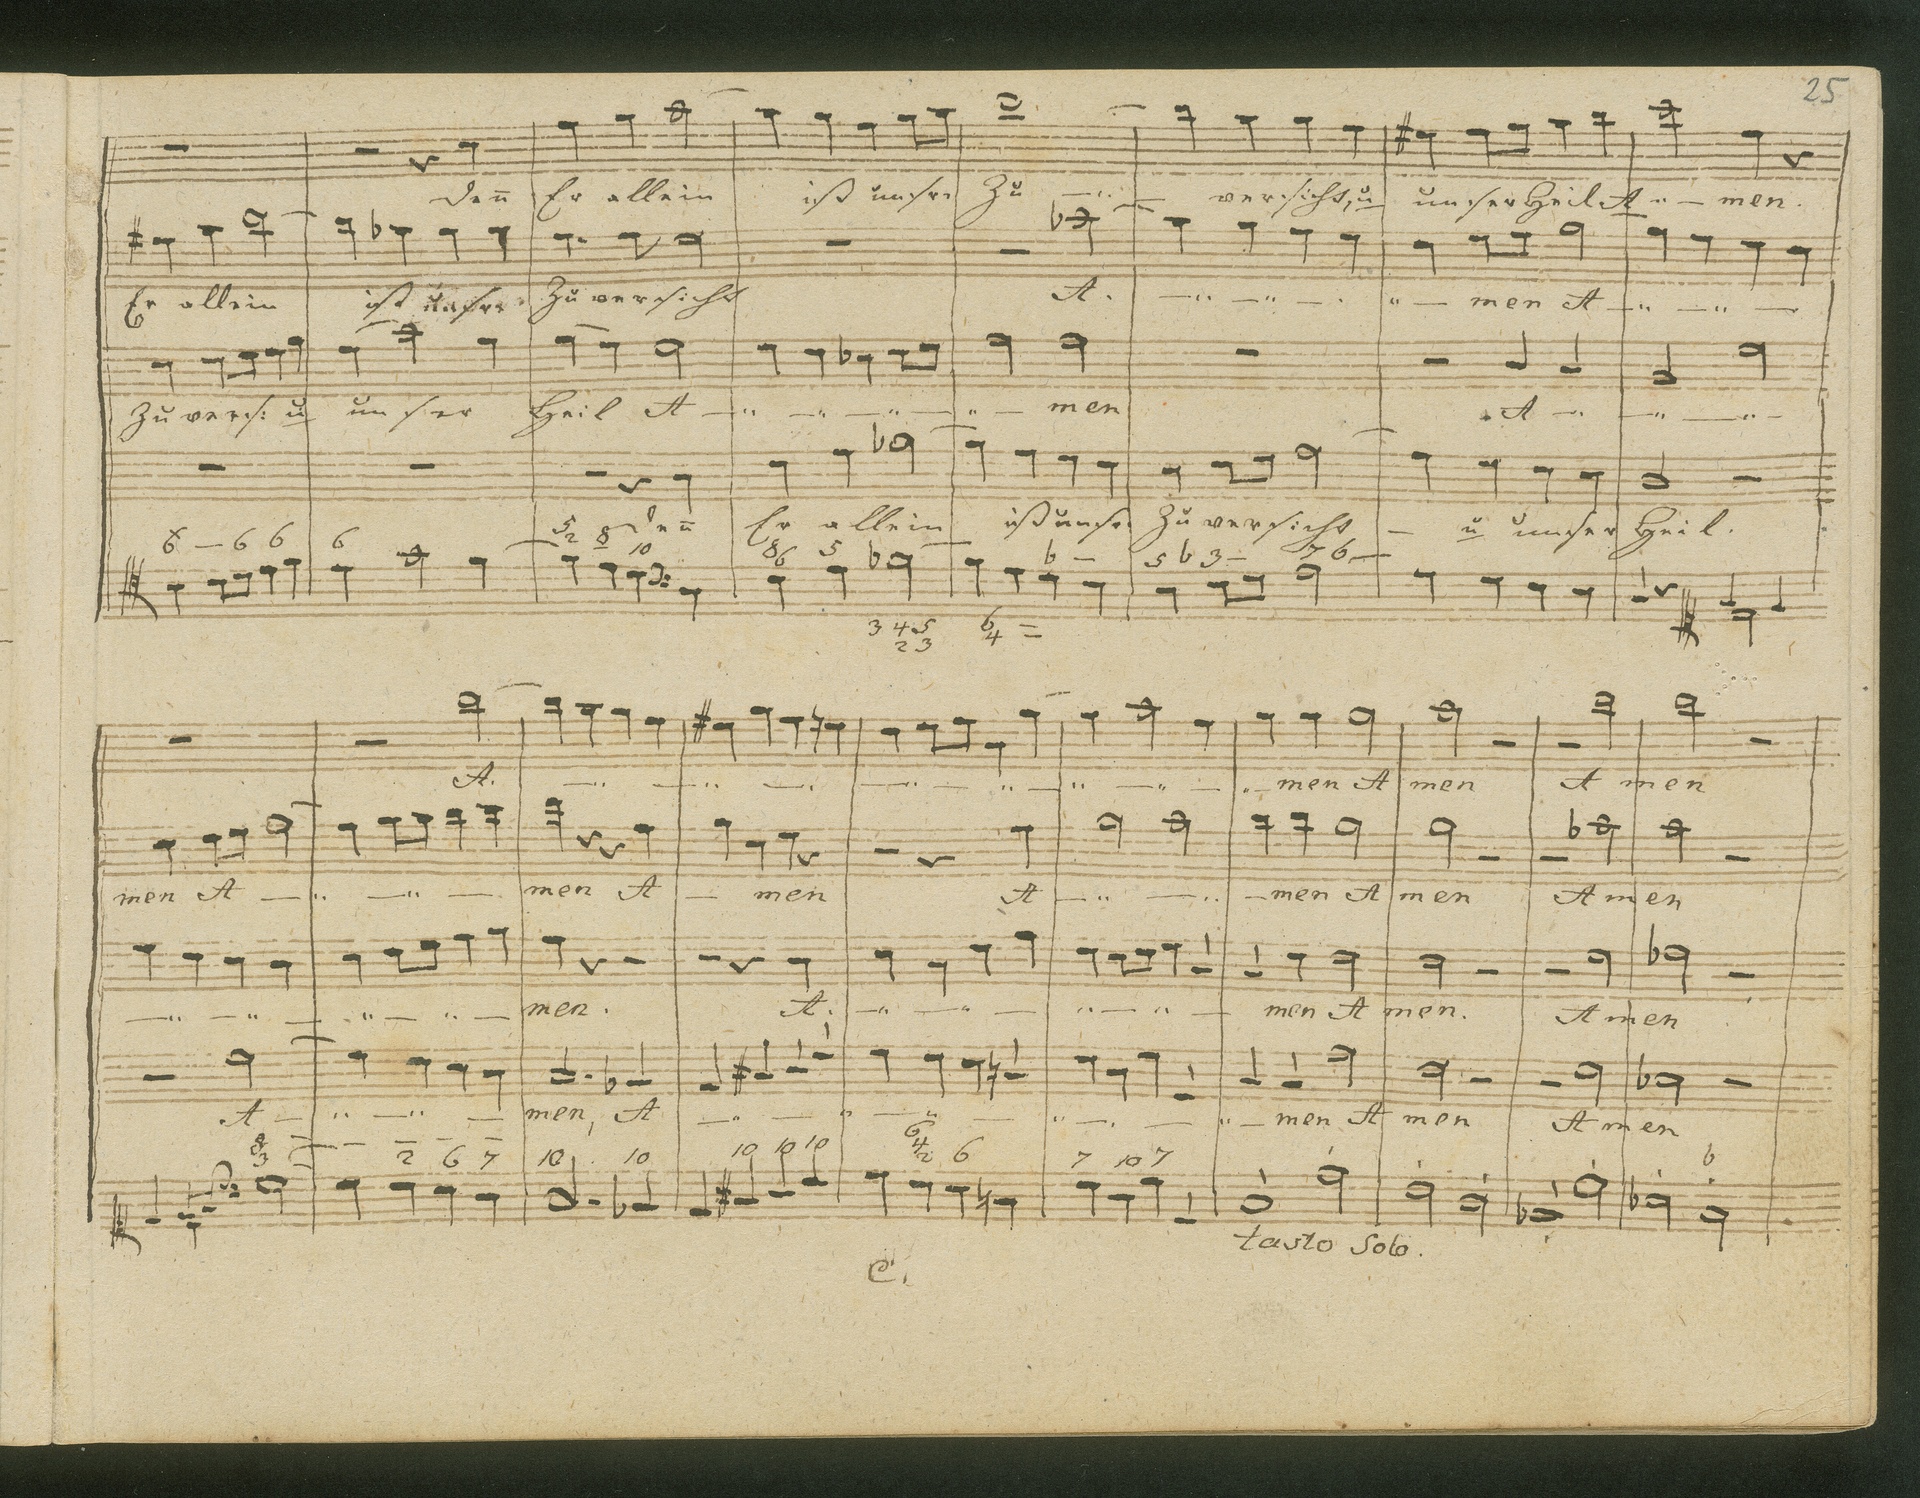 25
Den̅ Er allein ist unsre Zu - versicht, u unser Heil A - - men.
Er allein ist unsre Zuversicht A. - - - - men A - - -
Zuvers: u unser Heil A - - - - men A - - -
Den̅ Er allein ist unsre Zuversicht - u unser Heil.
6 - 6 6 6 5 2 8 10 8 6 5 b - 5 b 3 - 7 6 -
3 4 2 5 3 6 4 =
A. - - - - - - - - men A men A men
men A - - - men A - men A - - - men A men A men
- - - - - men. A. - - - - men A men. A men
A - - - - men, A - - - - - - men A men A men
8 3 - - 2 6 7 10 10 10 10 10 6 4 2 6 7 10 7 6
tasto Solo.